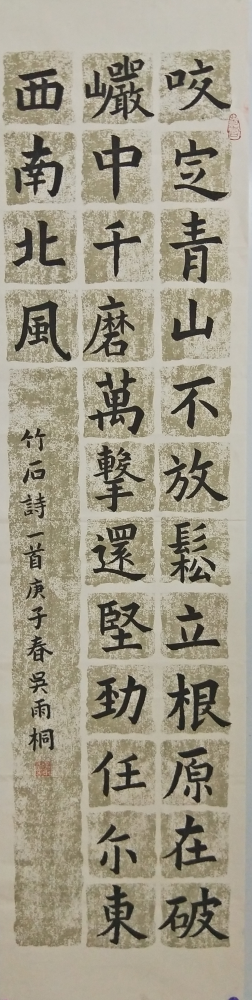 咬定青山不放鬆立根原在破
巖中千磨萬擊還堅勁任尔東
西南北風
竹石詩一首庚子春吳雨桐